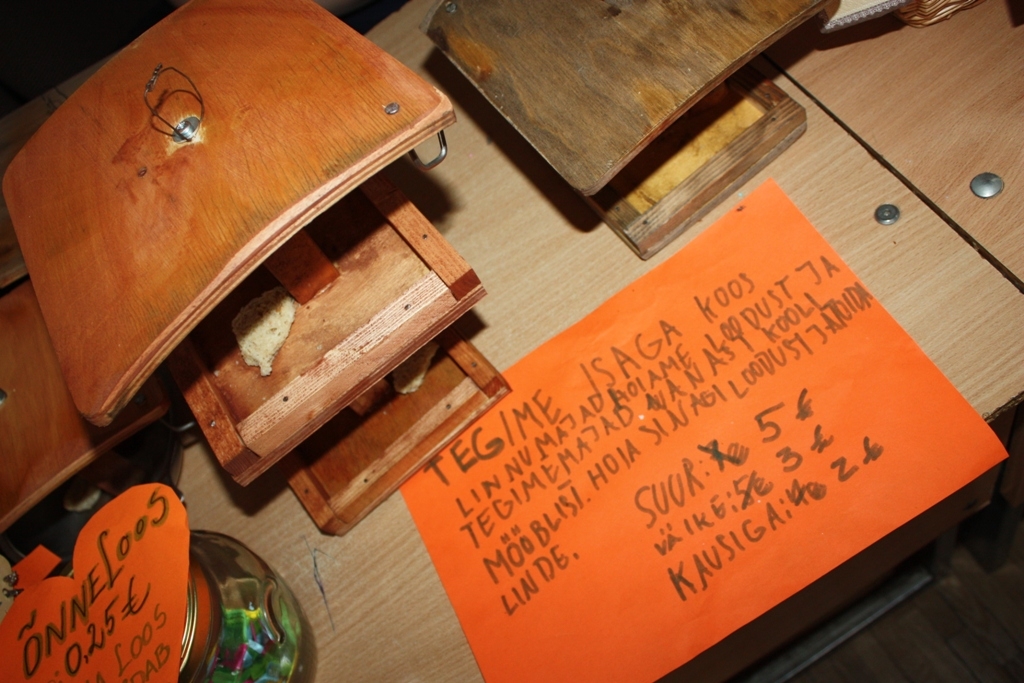 TEGIME ISAGA KOOS
LINNUMAJAD. HOIAME LOODUST JA
TEGIME MAJAD VANAST KOOLI
MÖÖBLIST. HOIA SINAGI LOODUST JA TOIDA
LINDE.
SUUR: 5 €
VÄIKE: 5€ 3 €
KAUSIGA: 4€ 2 €
ÕNNELOOS
0,25 €
LOOS